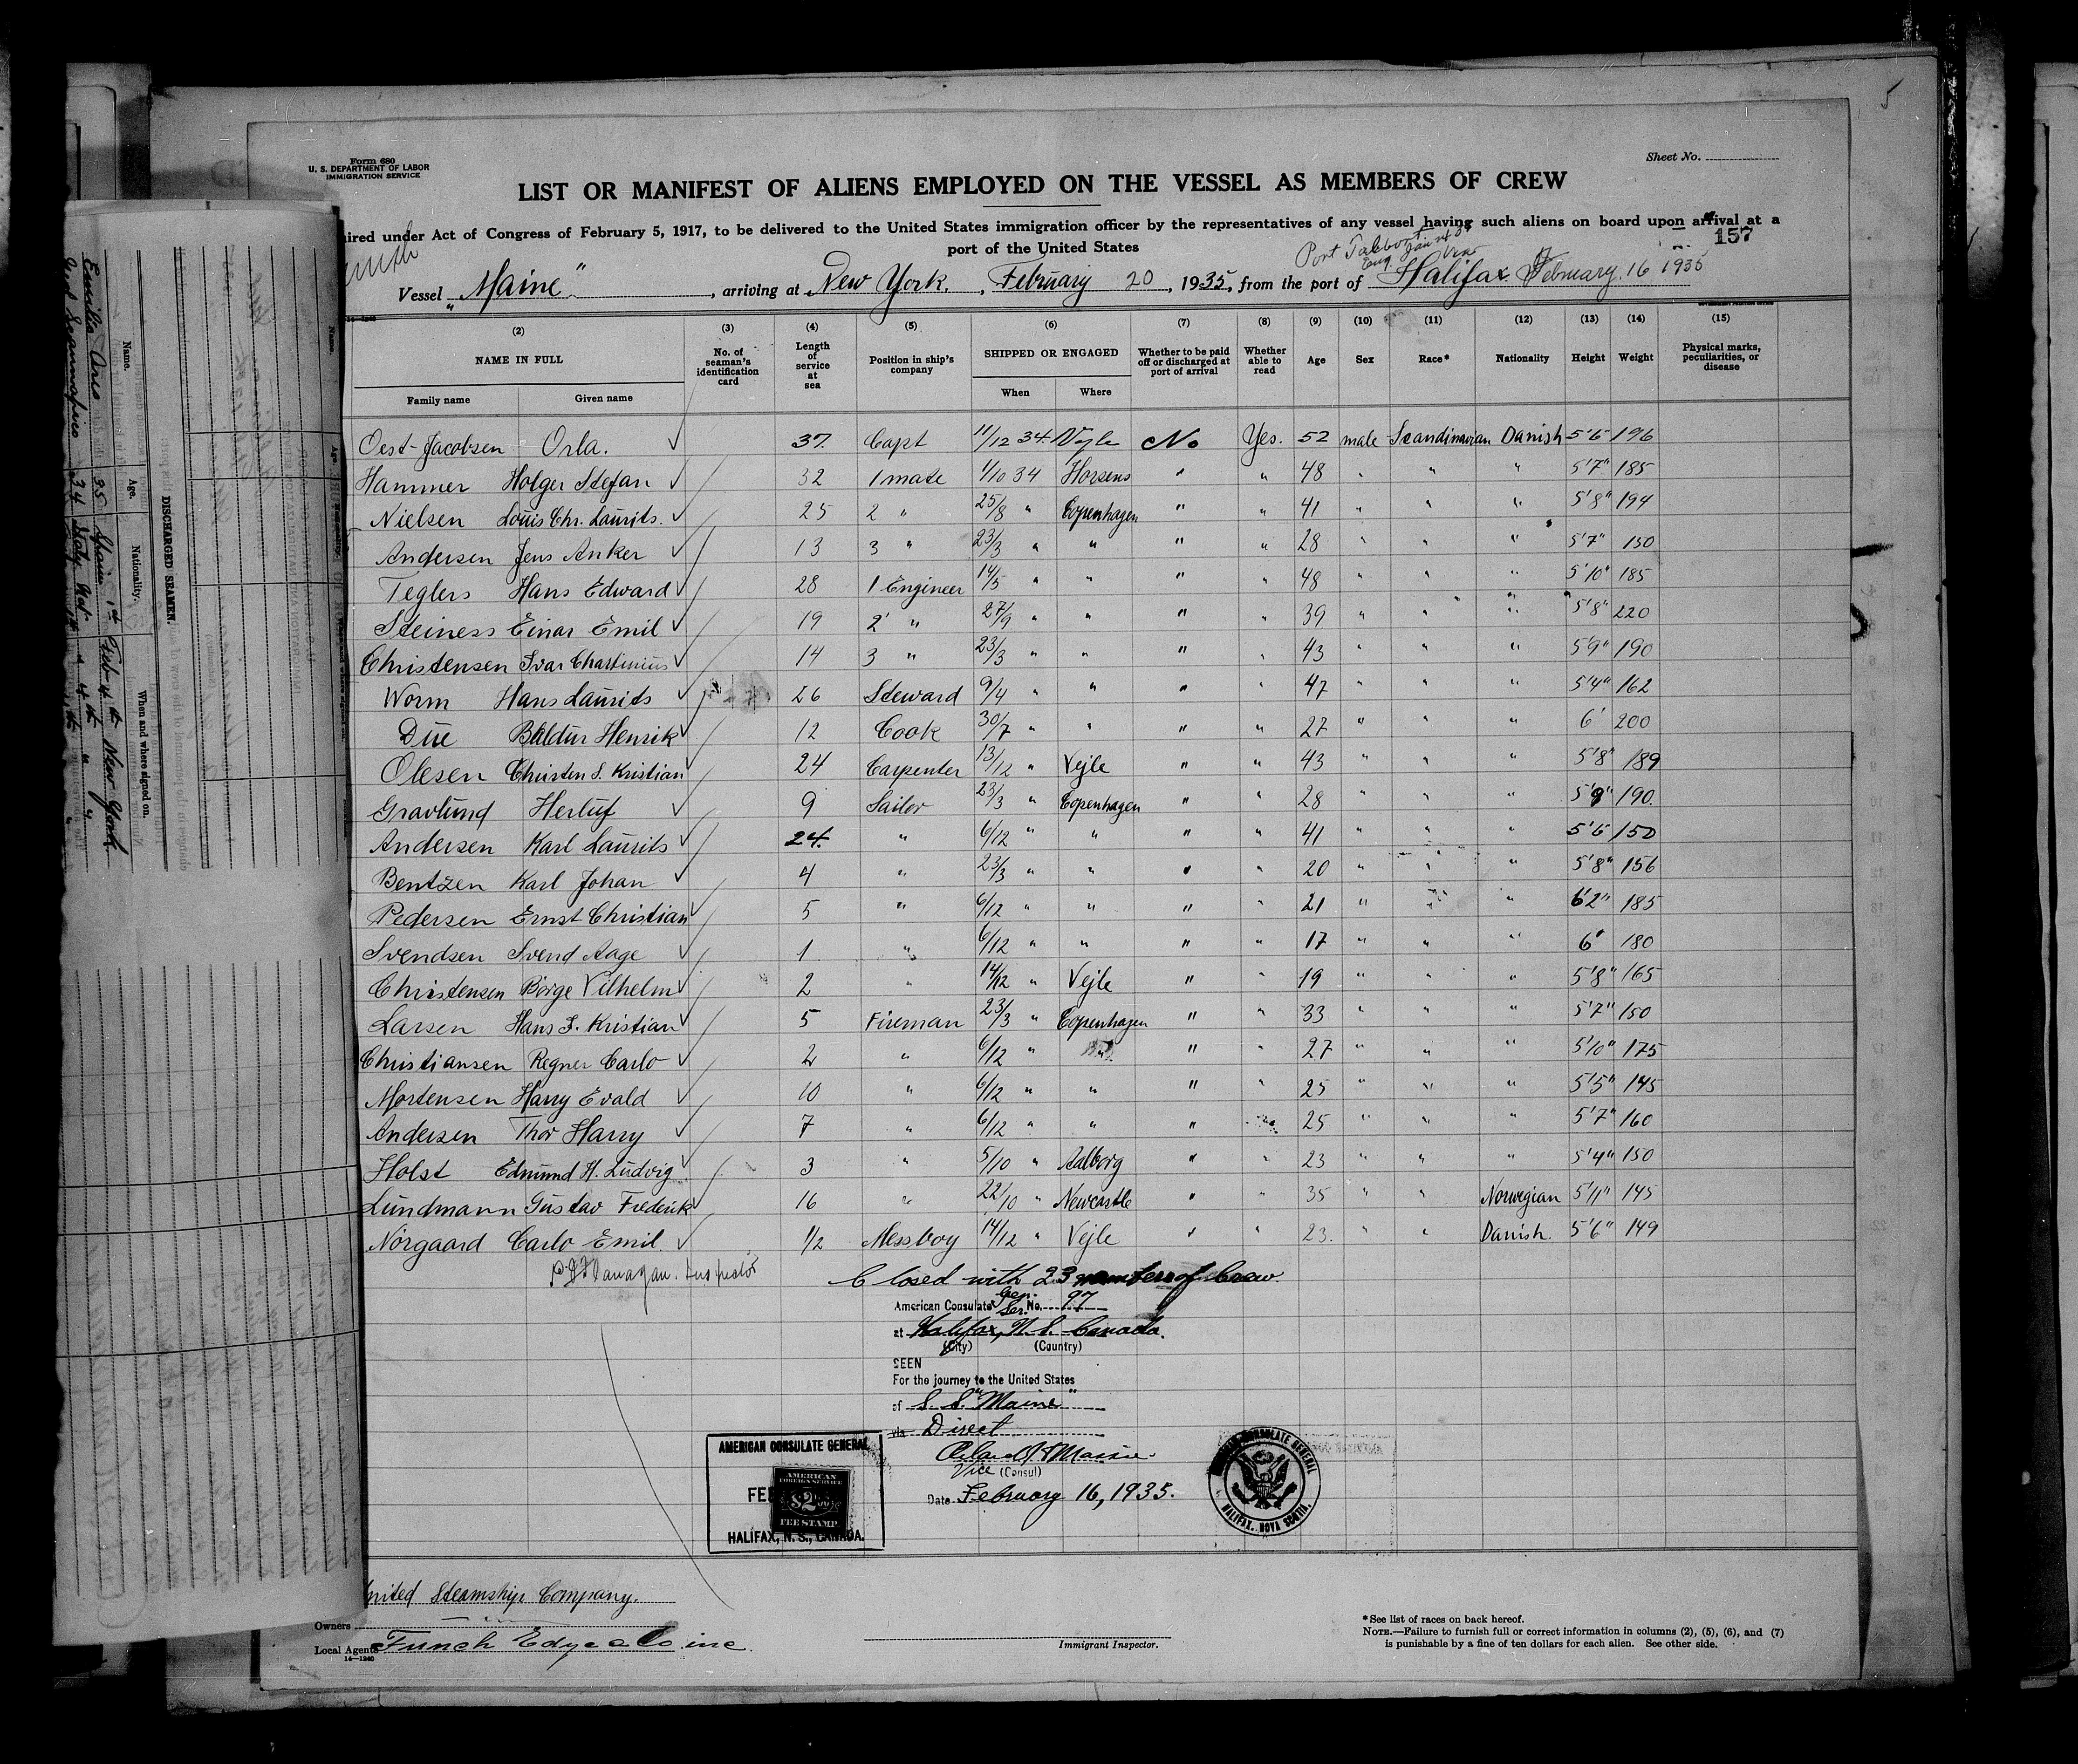 5
Form 680
U. S. DEPARTMENT OF LABOR
IMMIGRATION SERVICE
Sheet No.
LIST OR MANIFEST OF ALIENS EMPLOYED ON THE VESSEL AS MEMBERS OF CREW
ired under Act of Congress of February 5, 1917, to be delivered to the United States immigration officer by the representatives of any vessel having such aliens on board upon arrival at a
port of the United States
157
Vessel "Maine", arriving at New York, February 20, 1935, from the port of Halifax February 16 1935
(2) (3) (4) (5) (6) (7) (8) (9) (10) (11) (12) (13) (14) (15)
NAME IN FULL No. of seaman's identification card Length of service at sea Position in ship's company SHIPPED OR ENGAGED Whether to be paid off or discharged at port of arrival Whether able to read Age Sex Race* Nationality Height Weight Physical marks, peculiarities, or disease
Family name Given name When Where
Oest-Jacobsen Orla. 37. Capt 11/12 34. Vejle No Yes. 52 male Scandinavian Danish 5'6 196
Hammer Holger Stefan 32 1 mate 1/10 34 Horsens " " 48 " " " 5'7" 185
Nielsen Louis Chr. Laurits. 25 2 " 25/8 " Copenhagen " " 41 " " " 5'8" 194
Andersen Jens Anker 13 3 " 23/3 " " " " 28 " " " 5'7" 150
Teglers Hans Edward 28 1 Engineer 14/5 " " " " 48 " " " 5'10" 185
Steiness Einar Emil 19 2 " 27/9 " " " " 39 " " " 5'8" 220
Christensen Ivar Chartinius 14 3 " 23/3 " " " " 43 " " " 5'9" 190
Worm Hans Laurits 26 Steward 9/4 " " " " 47 " " " 5'4" 162
Due Baldur Henrik 12 Cook 30/7 " " " " 27 " " " 6' 200
Olesen Christen S. Kristian 24 Carpenter 13/12 " Vejle " " 43 " " " 5'8" 189
Gravlund Herluf 9 Sailor 23/3 " Copenhagen " " 28 " " " 5'9" 190.
Andersen Karl Laurits 24. " 6/12 " " " " 41 " " " 5'6 150
Bentzen Karl Johan 4 " 23/3 " " " " 20 " " " 5'8" 156
Pedersen Ernst Christian 5 " 6/12 " " " " 21 " " " 6'2" 185
Svendsen Svend Aage 1 " 6/12 " " " " 17 " " " 6' 180
Christensen Börge Vilhelm 2 " 14/12 " Vejle " " 19 " " " 5'8" 165
Larsen Hans F. Kristian 5 Fireman 23/3 " Copenhagen " " 33 " " " 5'7" 150
Christiansen Regner Carlo 2 " 6/12 " " " " 27 " " " 5'10" 175
Mortensen Harry Evald 10 " 6/12 " " " " 25 " " " 5'5" 145
Andersen Thor Harry 7 " 6/12 " " " " 25 " " " 5'7" 160
Holst Edmund H. Ludvig 3 " 5/10 " Aalborg " " 23 " " " 5'4" 150
Lundmann Gustav Frederik 16 " 22/10 " Newcastle " " 35 " " Norwegian 5'11" 145
Nörgaard Carlo Emil. 1/2 Messboy 14/12 " Vejle " " 23. " " Danish. 5'6" 149
Closed with 23 members of Crew
American Consulate Gen. Ser. No. 97
at Halifax, N. S. Canada.
(City) (Country)
SEEN
For the journey to the United States
of S. S. "Maine"
via Direct
Vice (Consul)
Date February 16, 1935.
AMERICAN CONSULATE GENERAL
AMERICAN
FOREIGN SERVICE
$2.00
FEE STAMP
HALIFAX, N. S., CANADA.
AMERICAN CONSULATE GENERAL
HALIFAX, NOVA SCOTIA.
United Steamship Company.
Owners
Local Agents Funch Edye & Co inc.
14—1240
Immigrant Inspector.
*See list of races on back hereof.
NOTE.—Failure to furnish full or correct information in columns (2), (5), (6), and (7)
is punishable by a fine of ten dollars for each alien. See other side.
DISCHARGED SEAMEN.
Name. Age. Nationality. When and where signed on.